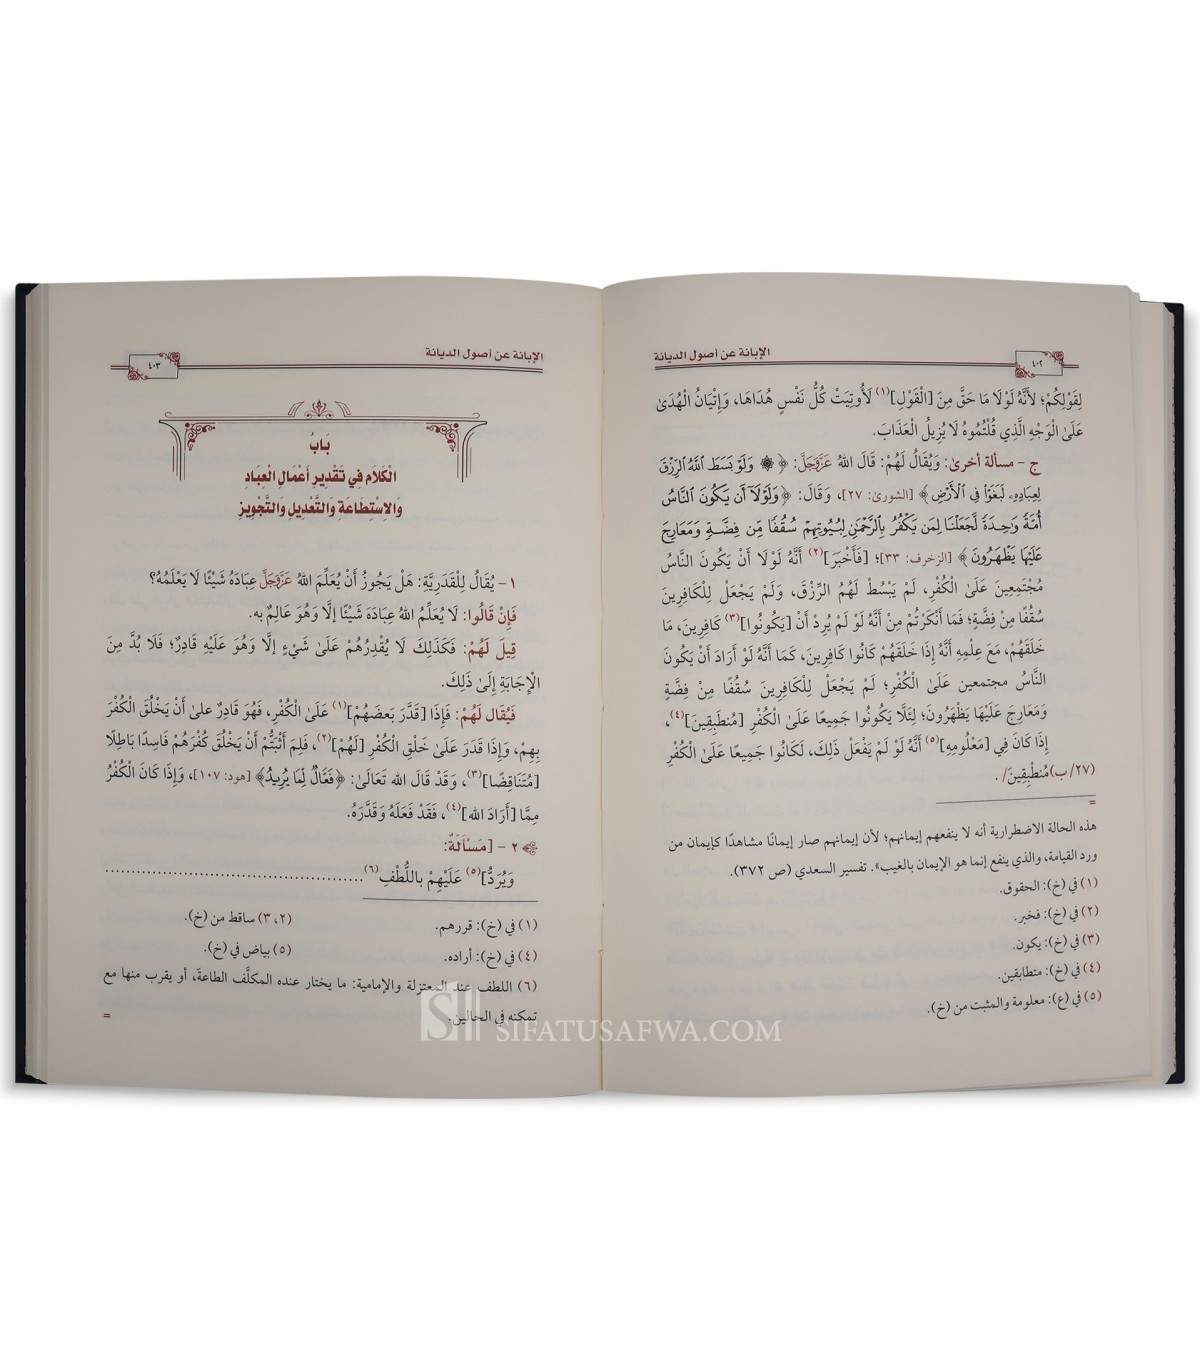 الإبانة عن أصول الديانة
٤٠٢
لِقَوْلِكُمْ؛ لأَنَّهُ لَوْلَا مَا حَقَّ مِنَ [الْقَوْلِ](١) لَأُوتِيَتْ كُلُّ نَفْسٍ هُدَاهَا، وَإِتْيَانُ الْهُدَىٰ
عَلَىٰ الْوَجْهِ الَّذِي قُلْتُمُوهُ لَا يُزِيلُ الْعَذَابَ.
ج - مسألة أخرىٰ: وَيُقَالُ لَهُمْ: قَالَ اللهُ عَزَّوَجَلَّ: ﴿ ۞ وَلَوْ بَسَطَ ٱللَّهُ ٱلرِّزْقَ
لِعِبَادِهِۦ لَبَغَوْا۟ فِى ٱلْأَرْضِ ﴾ [الشورىٰ: ٢٧]، وَقَالَ: ﴿ وَلَوْلَآ أَن يَكُونَ ٱلنَّاسُ
أُمَّةً وَٰحِدَةً لَّجَعَلْنَا لِمَن يَكْفُرُ بِٱلرَّحْمَٰنِ لِبُيُوتِهِمْ سُقُفًا مِّن فِضَّةٍ وَمَعَارِجَ
عَلَيْهَا يَظْهَرُونَ ﴾ [الزخرف: ٣٣]؛ [فَأَخْبَرَ](٢) أَنَّهُ لَوْلَا أَنْ يَكُونَ النَّاسُ
مُجْتَمِعِينَ عَلَىٰ الْكُفْرِ، لَمْ يَبْسُطْ لَهُمُ الرِّزْقَ، وَلَمْ يَجْعَلْ لِلْكَافِرِينَ
سُقُفًا مِنْ فِضَّةٍ؛ فَمَا أَنْكَرْتُمْ مِنْ أَنَّهُ لَوْ لَمْ يُرِدْ أَنْ [يَكُونُوا](٣) كَافِرِينَ، مَا
خَلَقَهُمْ، مَعَ عِلْمِهِ أَنَّهُ إِذَا خَلَقَهُمْ كَانُوا كَافِرِينَ، كَمَا أَنَّهُ لَوْ أَرَادَ أَنْ يَكُونَ
النَّاسُ مجتمعين عَلَىٰ الْكُفْرِ؛ لَمْ يَجْعَلْ لِلْكَافِرِينَ سُقُفًا مِنْ فِضَّةٍ
وَمَعَارِجَ عَلَيْهَا يَظْهَرُونَ؛ لِئَلَّا يَكُونُوا جَمِيعًا عَلَىٰ الْكُفْرِ [مُنطَبِقِينَ](٤)،
إِذَا كَانَ فِي [مَعْلُومِهِ](٥) أَنَّهُ لَوْ لَمْ يَفْعَلْ ذَلِكَ، لَكَانُوا جَمِيعًا عَلَىٰ الْكُفْرِ
(٢٧/ب) مُنطَبِقِينَ/.
=
هذه الحالة الاضطرارية أنه لا ينفعهم إيمانهم؛ لأن إيمانهم صار إيمانًا مشاهدًا كإيمان من
ورد القيامة، والذي ينفع إنما هو الإيمان بالغيب». تفسير السعدي (ص ٣٧٢).
(١) في (خ): الحقوق.
(٢) في (خ): فخبر.
(٣) في (خ): يكون.
(٤) في (خ): متطابقين.
(٥) في (ع): معلومة والمثبت من (خ).
الإبانة عن أصول الديانة
٤٠٣
بَابُ
الْكَلَامِ فِي تَقْدِيرِ أَعْمَالِ الْعِبَادِ
وَالِاسْتِطَاعَةِ وَالتَّعْدِيلِ وَالتَّجْوِيزِ
١ - يُقَالُ لِلْقَدَرِيَّةِ: هَلْ يَجُوزُ أَنْ يُعَلِّمَ اللهُ عَزَّوَجَلَّ عِبَادَهُ شَيْئًا لَا يَعْلَمُهُ؟
فَإِنْ قَالُوا: لَا يُعَلِّمُ اللهُ عِبَادَهُ شَيْئًا إِلَّا وَهُوَ عَالِمٌ به.
قِيلَ لَهُمْ: فَكَذَلِكَ لَا يُقْدِرُهُمْ عَلَىٰ شَيْءٍ إِلَّا وَهُوَ عَلَيْهِ قَادِرٌ؛ فَلَا بُدَّ مِنَ
الْإِجَابَةِ إِلَىٰ ذَلِكَ.
فَيُقَال لَهُمْ: فَإِذَا [قَدَّرَ بَعضَهُمْ](١) عَلَىٰ الْكُفْرِ، فَهُوَ قَادِرٌ علىٰ أَنْ يَخْلُقَ الْكُفْرَ
بِهِمْ، وَإِذَا قَدَرَ عَلَىٰ خَلْقِ الْكُفْرِ [لَهُمْ](٢)، فَلِمَ أَثْبَتُّمْ أَنْ يَخْلُقَ كُفْرَهُمْ فَاسِدًا بَاطِلًا
[مُتَنَاقِضًا](٣)، وَقَدْ قَالَ الله تَعَالَىٰ: ﴿فَعَّالٌ لِّمَا يُرِيدُ﴾ [هود: ١٠٧]، وَإِذَا كَانَ الْكُفْرُ
مِمَّا [أَرَادَ الله](٤)، فَقَدْ فَعَلَهُ وَقَدَّرَهُ.
٢ - [مَسْأَلَةٌ:
وَيُرَدُّ](٥) عَلَيْهِمْ باللُّطْفِ(٦)...................................................
(١) في (خ): قررهم. (٢، ٣) ساقط من (خ).
(٤) في (خ): أراده. (٥) بياض في (خ).
(٦) اللطف عند المعتزلة والإمامية: ما يختار عنده المكلَّف الطاعة، أو يقرب منها مع
تمكنه في الحالين.
=
SIFATUSAFWA.COM